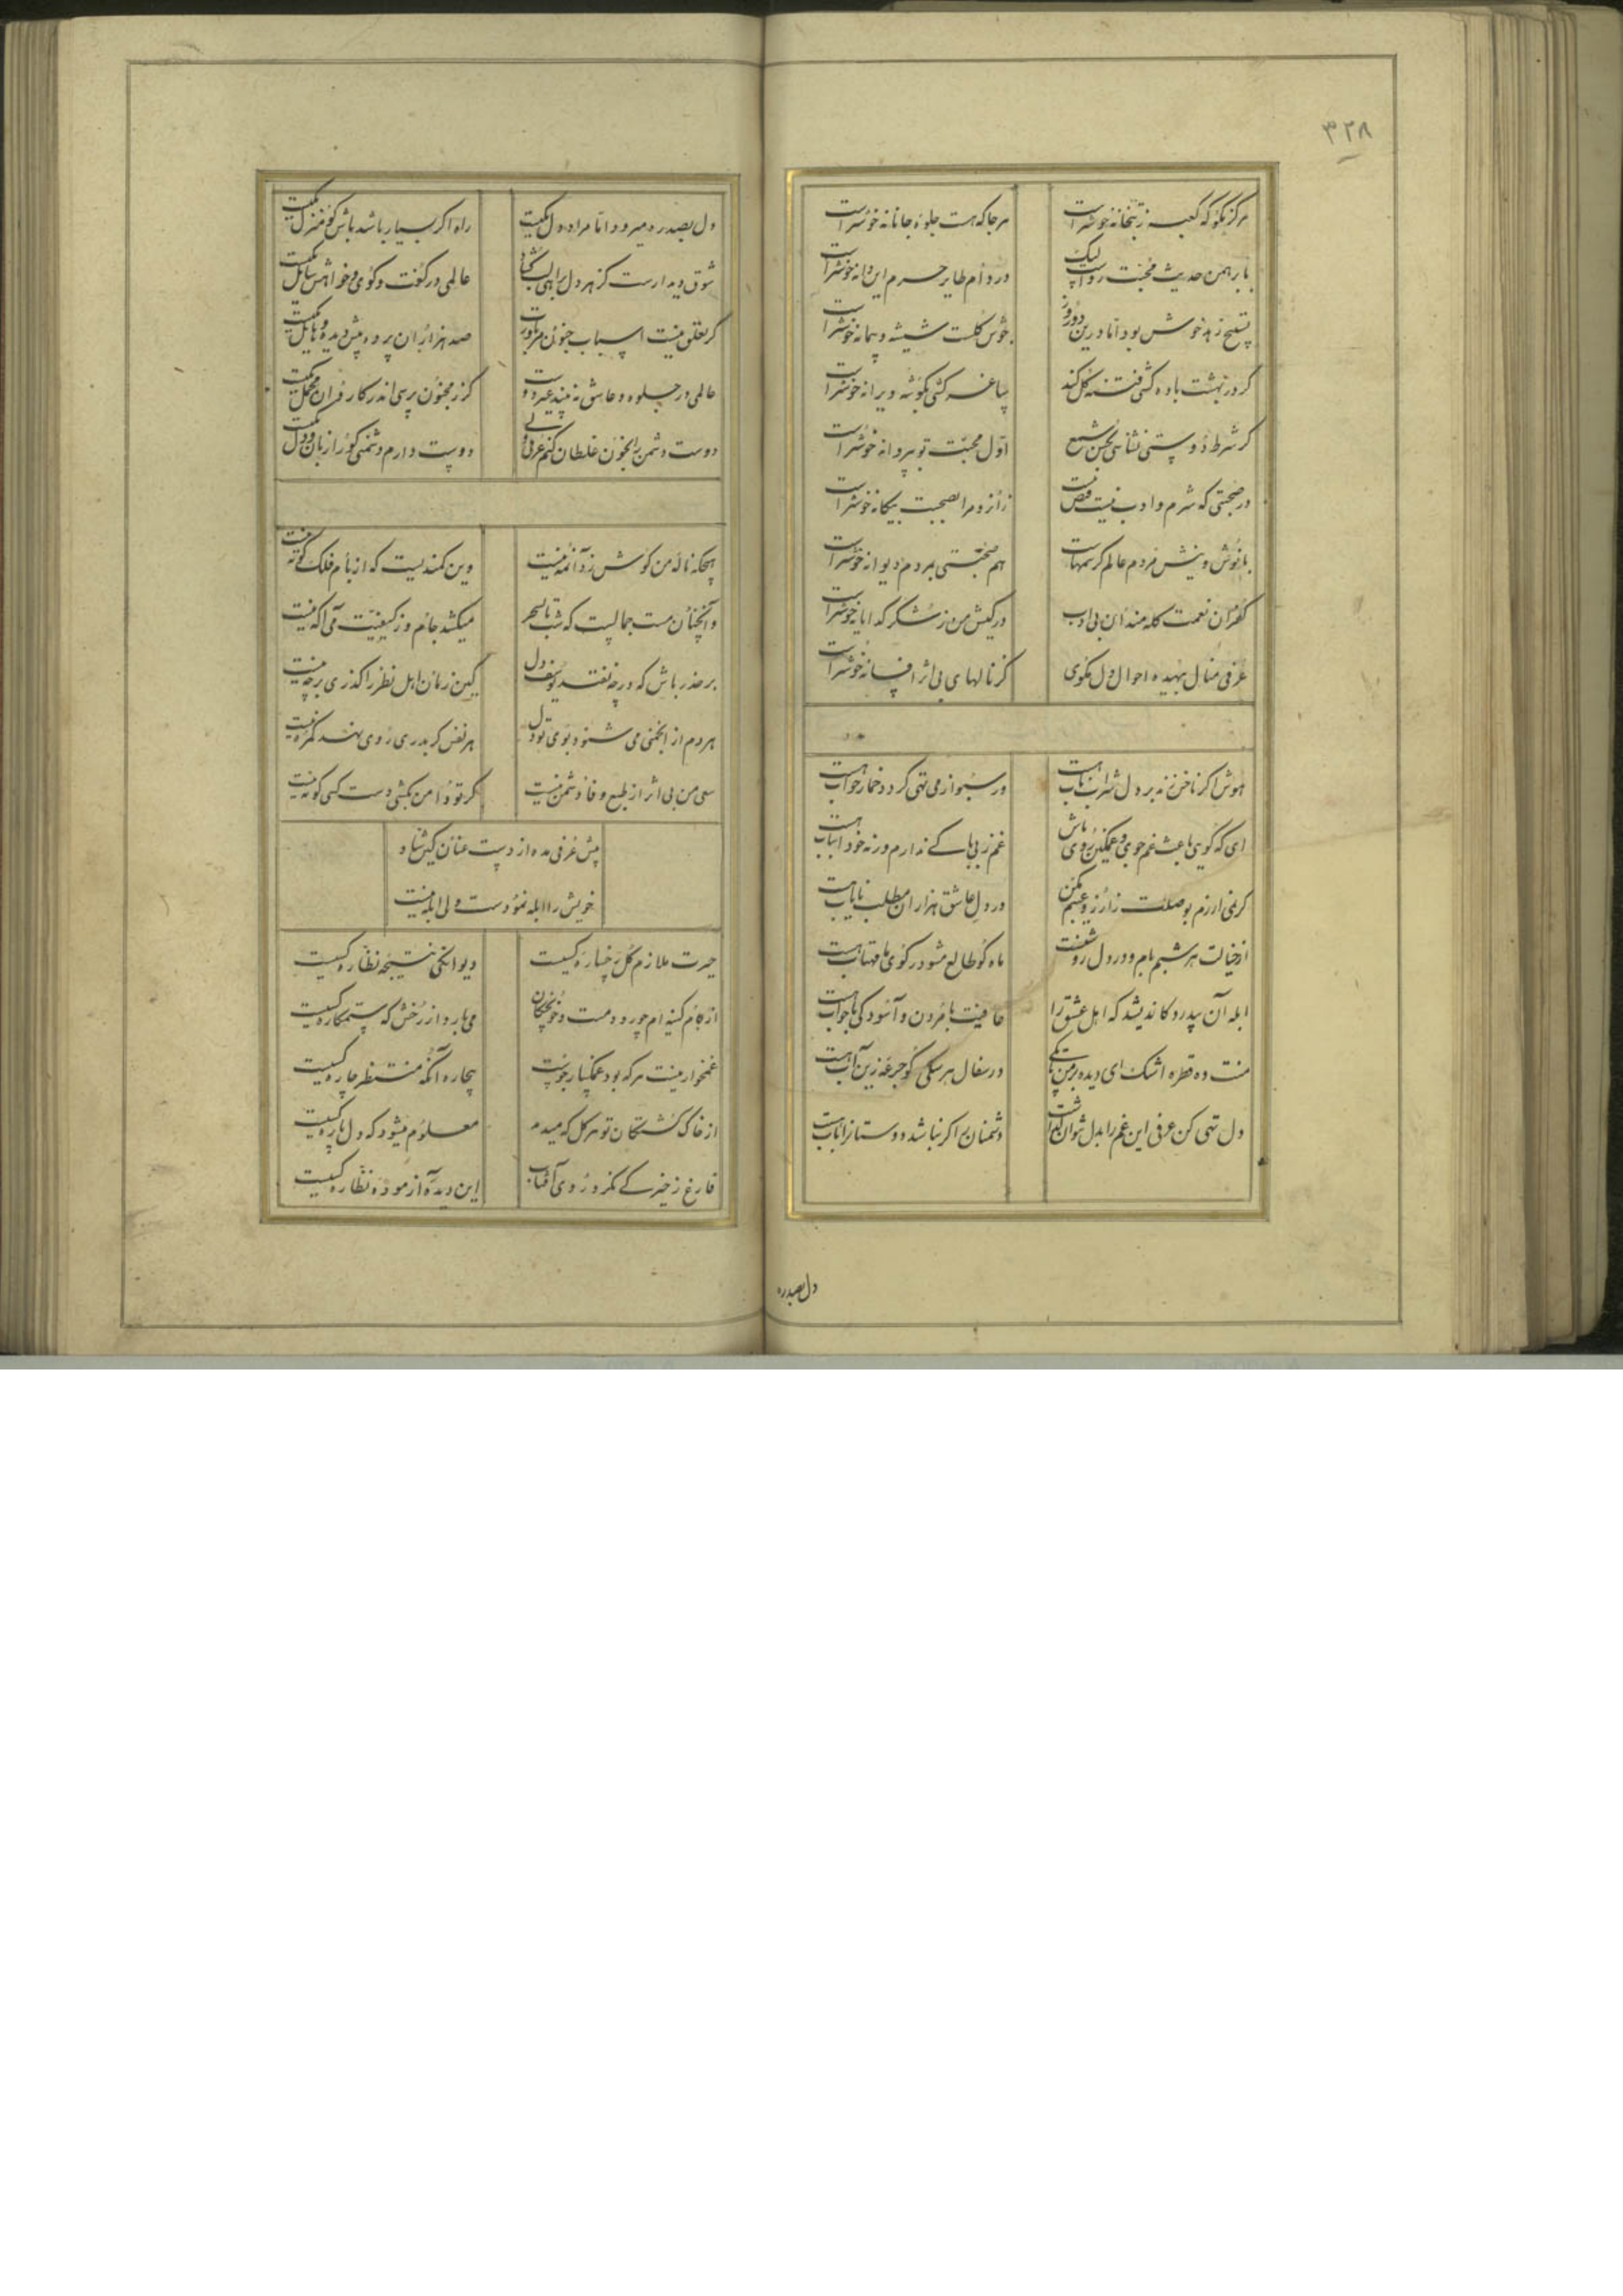 ۳۲۸
هرگز مگو که کعبه ز بتخانه خوشتر است هر جا که هست جلوهٔ جانانه خوشتر است
با برهمن حدیث محبت رواست لیک در دام طایر حرم این دانه خوشتر است
تسبیح زهد خوش بود اما درین دو روز جوش گلست شیشه و پیمانه خوشتر است
گر در بهشت باده کشی فتنه گل کند ساغر کشی بگوشه ویرانه خوشتر است
گر شرط دوستی نشناسی بحسن شمع اول محبت تو بپروانه خوشتر است
در صحبتی که شرم و ادب نیست فیض نیست زانرو مرا بصحبت بیگانه خوشتر است
با نوش و نیش مردم عالم کرسمهاست هم صحبتی بمردم دیوانه خوشتر است
کفران نعمت گله مندان بی ادب در کیش من ز شکر گدایانه خوشتر است
عرفی منال بیهده احوال دل مگوی کز نالهای بی اثر افسانه خوشتر است
هوش اگر ناخن زند بر دل شراب ناب هست ور سبو از می تهی گردد خمار خواب هست
ای که گویی باعث غم جوی و غمگین روی باش غم ز بی باکی ندارم ورنه خود اسباب هست
گر نمی ارزم بوصلت ز آرزو عیبم مکن در دل عاشق هزاران مطلب نایاب هست
از خیالت هر شبم بام و در دل روشنست ماه گو طالع مشو در کوی ما مهتاب هست
ابله آن بیدرد کاندیشد که اهل عشق را عافیت با مردن و آسودگی با خواب هست
منت ده قطره اشک ای دیده بر من تا بکی در سفال هر سگی گو جرعهٔ زین آب هست
دل تهی کن عرفی این غم را بدل نتوان گذاشت دشمنان را گر نباشد دوستانرا تاب هست
دل بصدره
دل بصد ره میرود اما مراد دل یکیست راه اگر بسیار باشد باش گو منزل یکیست
شوق دیدارست کز هر دل براهی لب گشاد عالمی در گفت و گوی و خواهش سایل یکیست
گر تعلق نیست اسباب جنون مر باورت صد هزاران پرده پیش دیده و حایل یکیست
عالمی در جلوه و عاشق نبیند غیر دوست گر ز مجنون پرسی اندر کاروان محمل یکیست
دوست دشمن را بخون غلطان کنم عرفی ولی دوست دارم دشمنی کورا زبان و دل یکیست
هیچگه نالهٔ من گوش زد آنمه نیست وین کمندیست که از بام فلک کوته نیست
وآنچنان مست جمالیست که شب تا بسحر میکشد جانم و ز کیفیت می آگه نیست
بر حذر باش که در چه نفتد یوسف دل کین زمان اهل نظر را گذری بر چه نیست
هر دم از انجمنی می شنود بوی تو دل هر نفس گر بدری روی نهد گمره نیست
سعی من بی اثر از طبع وفا دشمن نیست گر تو دامن نکشی دست کسی کوته نیست
پیش عرفی مده از دست عنان کین شیاد
خویش را ابله نمودست ولی ابله نیست
حیرت ملازم گل رخسارهٔ کیست دیوانگی نتیجهٔ نظارهٔ کیست
از کام کینه ام چو رود مست و خونچکان می بارد از رخش که ستمکارهٔ کیست
غمخوار نیست هر که بود غمگسار جوست بیچاره آنکه منتظر چارهٔ کیست
از خاک کشتگان تو هر گل که میدمد معلوم میشود که دل پارهٔ کیست
فارغ ز خیرگی نگرد روی آفتاب این دیده آزمودهٔ نظارهٔ کیست